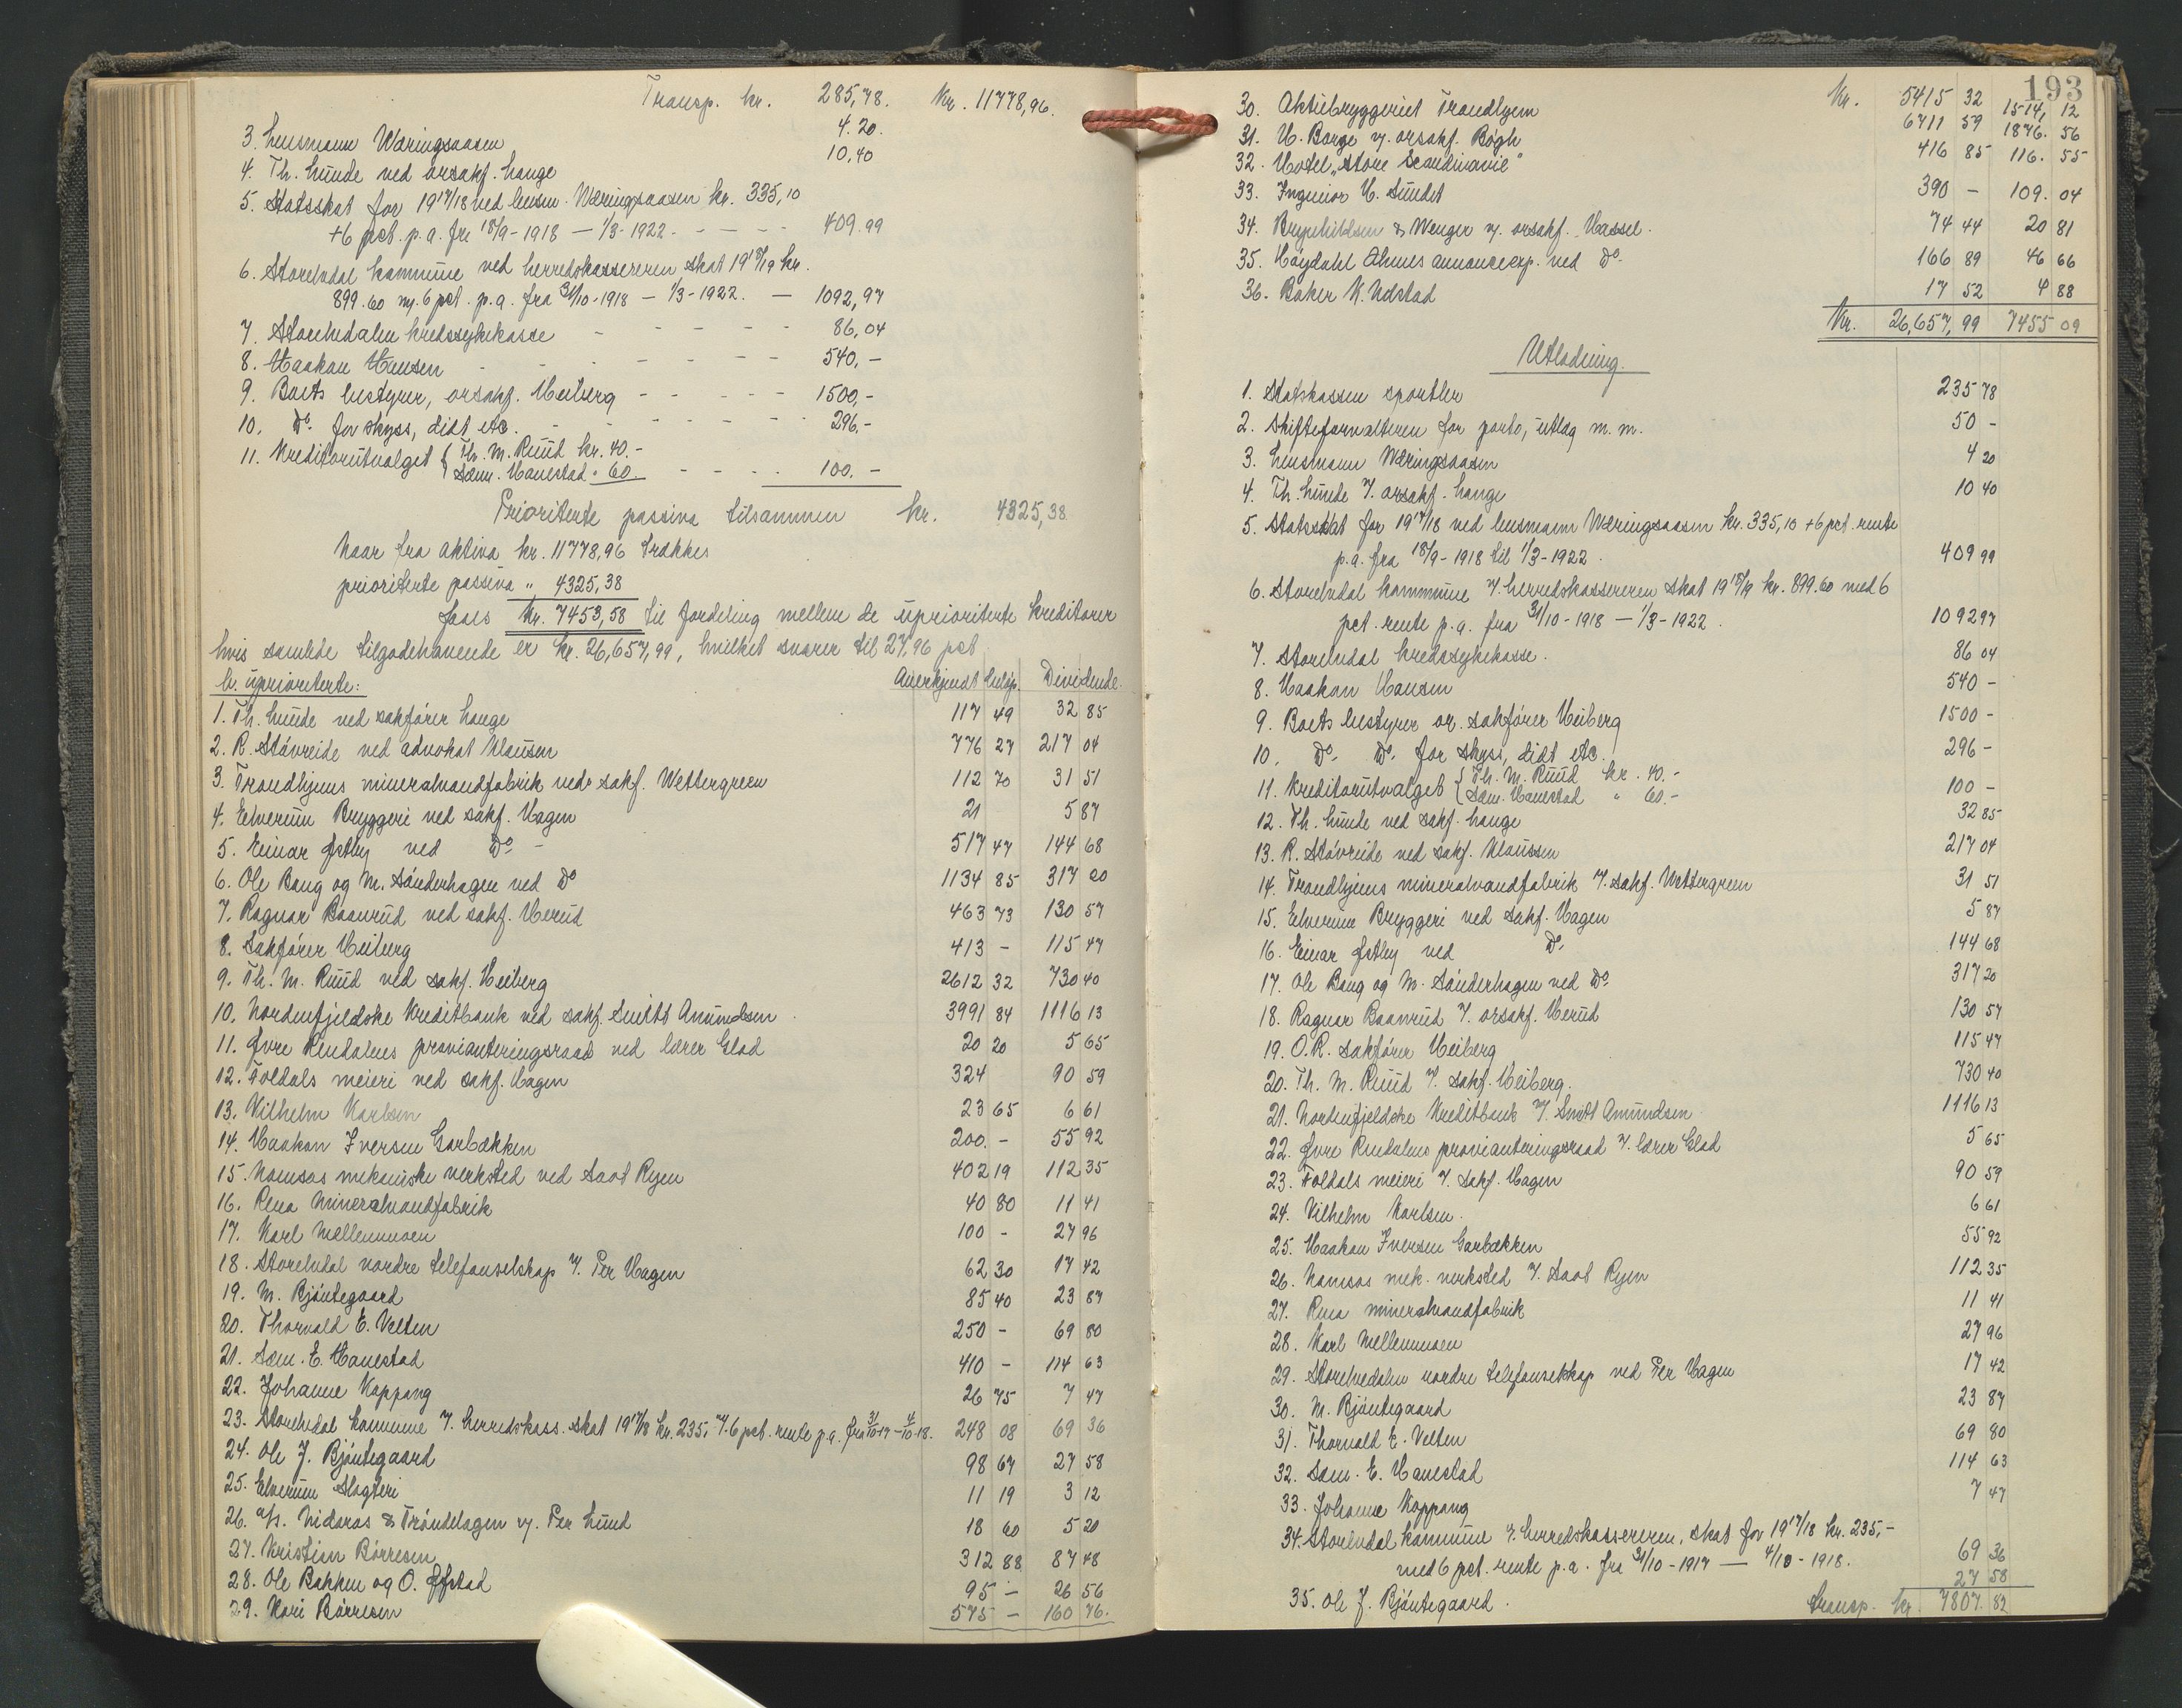 Transp. kr. 285,78. Kr. 11778,96.
3. Lensmann Wæringsaasen 4.20.
4. Th. Lunde ved orsakf. Lange 10,40
5. Statsskat for 1917/18 ved lensm. Wæringsaasen kr. 335,10
+6 pct. p.a. fra 18/9-1918 — 1/3-1922. - - - - 409.99
6. Storelvdal kommune ved herredskassereren skat 1918/19 kr.
899.60 m. 6 pct. p.a. fra 31/10-1918 — 1/3-1922. — 1092,97
7. Storelvdalen kredssykekasse - - - - - 86,04
8. Haakon Hansen - - - - - 540,-
9. Boets bestyrer, orsakf. Heiberg - - - - - 1500,-
10. Do. for skyss, didt etc. - - - - - 296,-
11. Kreditorutvalget { Th. M. Ruud kr. 40.-
Sam. Hanestad " 60 - - - - 100.-
Prioriterte passiva tilsammen kr. 4325,38
Naar fra aktiva kr. 11778,96 trækkes
prioriterte passiva " 4325,38
faaes kr. 7453,58 til fordeling mellem de uprioriterte kreditorer
hvis samlede tilgodehavende er kr. 26,657,99, hvilket svarer til 27,96 pct
b. uprioriterte: Anerkjendt beløp. Dividende.
1. Th. Lunde ved sakfører Lange 117 49 32 85
2. R. Støvreide ved advokat Klausen 776 27 217 04
3. Trondhjems mineralvandfabrik ved sakf. Wettergreen 112 70 31 51
4. Elverum Bryggeri ved sakf. Hagen 21 5 87
5. Einar Østby ved Do - 517 47 144 68
6. Ole Bang og M. Sønderhagen ved Do 1134 85 317 20
7. Ragnar Baanrud ved sakf. Herud 463 73 130 57
8. Sakfører Heiberg 413 - 115 47
9. Th. M. Ruud ved sakf. Heiberg 2612 32 730 40
10. Nordenfjeldske Kreditbank ved sakf. Smith Amundsen 3991 84 1116 13
11. Øvre Rendalens provianteringsraad ved lærer Glad 20 20 5 65
12. Foldals meieri ved sakf. Hagen 324 90 59
13. Vilhelm Karlsen 23 65 6 61
14. Haakon Iversen Garbækken 200.- 55 92
15. Namsos mekaniske verksted ved Saot Ryen 402 19 112 35
16. Rena Mineralvandfabrik 40 80 11 41
17. Karl Mellemmoen 100 - 27 96
18. Storelvdal nordre telefonselskap v. Per Hagen 62 30 17 42
19. M. Bjøntegaard 85 40 23 87
20. Thorvald E. Velten 250 - 69 80
21. Sam. E. Hanestad 410 - 114 63
22. Johanne Koppang 26 75 7 47
23. Storelvdal kommune v. herredskass. skat 1917/18 kr. 235,- 6 pct. rente p.a. fra 31/10-17 - 4/10-18. 248 08 69 36
24. Ole J. Bjøntegaard 98 67 27 58
25. Elverum Slagteri 11 19 3 12
26. a/s. Nidaros & Trøndelagen v. Per Lund 18 60 5 20
27. Kristian Børresen 312 88 87 48
28. Ole Bakken og O. Øfstad 95 - 26 56
29. Kari Børresen 575 - 160 76.
193
Kr. 5415 32 1514, 12
30. Aktiebryggeriet Trondhjem 6711 59 1876. 56
31. H. Borge v. orsakf. Bøgh 416 85 116. 55
32. Hotel "Store Scandinavie"
33. Ingeniør H. Sundet 390 - 109. 04
34. Brynhildsen & Wenger v. orsakf. Hassel. 74 44 20 81
35. Høydahl Ohmes annonceexp. ved Do. 166 89 46 66
36. Baker K. Udstad 17 52 4 88
Kr. 26,657,99 7455 09
Utlodning.
1. Statskassen sportler 235 78
2. Skifteforvalteren for porto, utlæg m.m. 50 -
3. Lensmann Wæringsaasen 4 20
4. Th. Lunde v. orsakf. Lange 10 40
5. Statsskat for 1917/18 ved lensmann Wæringsaasen kr. 335,10 +6 pct. rente
p.a. fra 18/9-1918 til 1/3-1922. 409 99
6. Storelvdal kommune v. herredskassereren skat 1918/19 kr. 899.60 med 6
pct. rente p.a. fra 31/10-1918 — 1/3-1922. 1092 97
7. Storelvdal kredssykekasse. 86 04
8. Haakon Hansen 540 -
9. Boets bestyrer or. sakfører Heiberg 1500 -
10. Do. Do. for skyss, didt etc. 296 -
11. Kreditorutvalget { Th. M. Ruud kr. 40.-
Sam. Hanestad " 60.- 100 -
12. Th. Lunde ved sakf. Lange 32 85
13. R. Støvreide ved sakf. Klaussen 217 04
14. Trondhjems mineralvandfabrik v. sakf. Wettergreen 31 51
15. Elverum Bryggeri ved sakf. Hagen 5 87
16. Einar Østby ved Do. 144 68
17. Ole Bang og M. Sønderhagen ved Do. 317 20
18. Ragnar Baanrud v. orsakf. Herud 130 57
19. O.R. sakfører Heiberg 115 47
20. Th. M. Ruud v. sakf. Heiberg. 730 40
21. Nordenfjeldske Kreditbank v. Smith Amundsen 1116 13
22. Øvre Rendalens provianteringsraad v. lærer Glad 5 65
23. Foldals meieri v. sakf. Hagen 90 59
24. Vilhelm Karlsen. 6 61
25. Haakon Iversen Garbækken 55 92
26. Namsos mek. verksted v. Saot Ryen 112 35
27. Rena mineralvandfabrik 11 41
28. Karl Mellemmoen 27 96
29. Storelvedalen nordre telefonselskap ved Per Hagen 17 42
30. M. Bjøntegaard 23 87
31. Thorvald E. Velten 69 80
32. Sam. E. Hanestad 114 63
33. Johanne Koppang 7 47
34. Storelvdal kommune v. herredskassereren, skat for 1917/18 kr. 235,-
med 6 pct. rente p.a. fra 31/10-1917 — 4/10-1918. 69 36
35. Ole J. Bjøntegaard. 27 58
transp. kr. 7807. 82